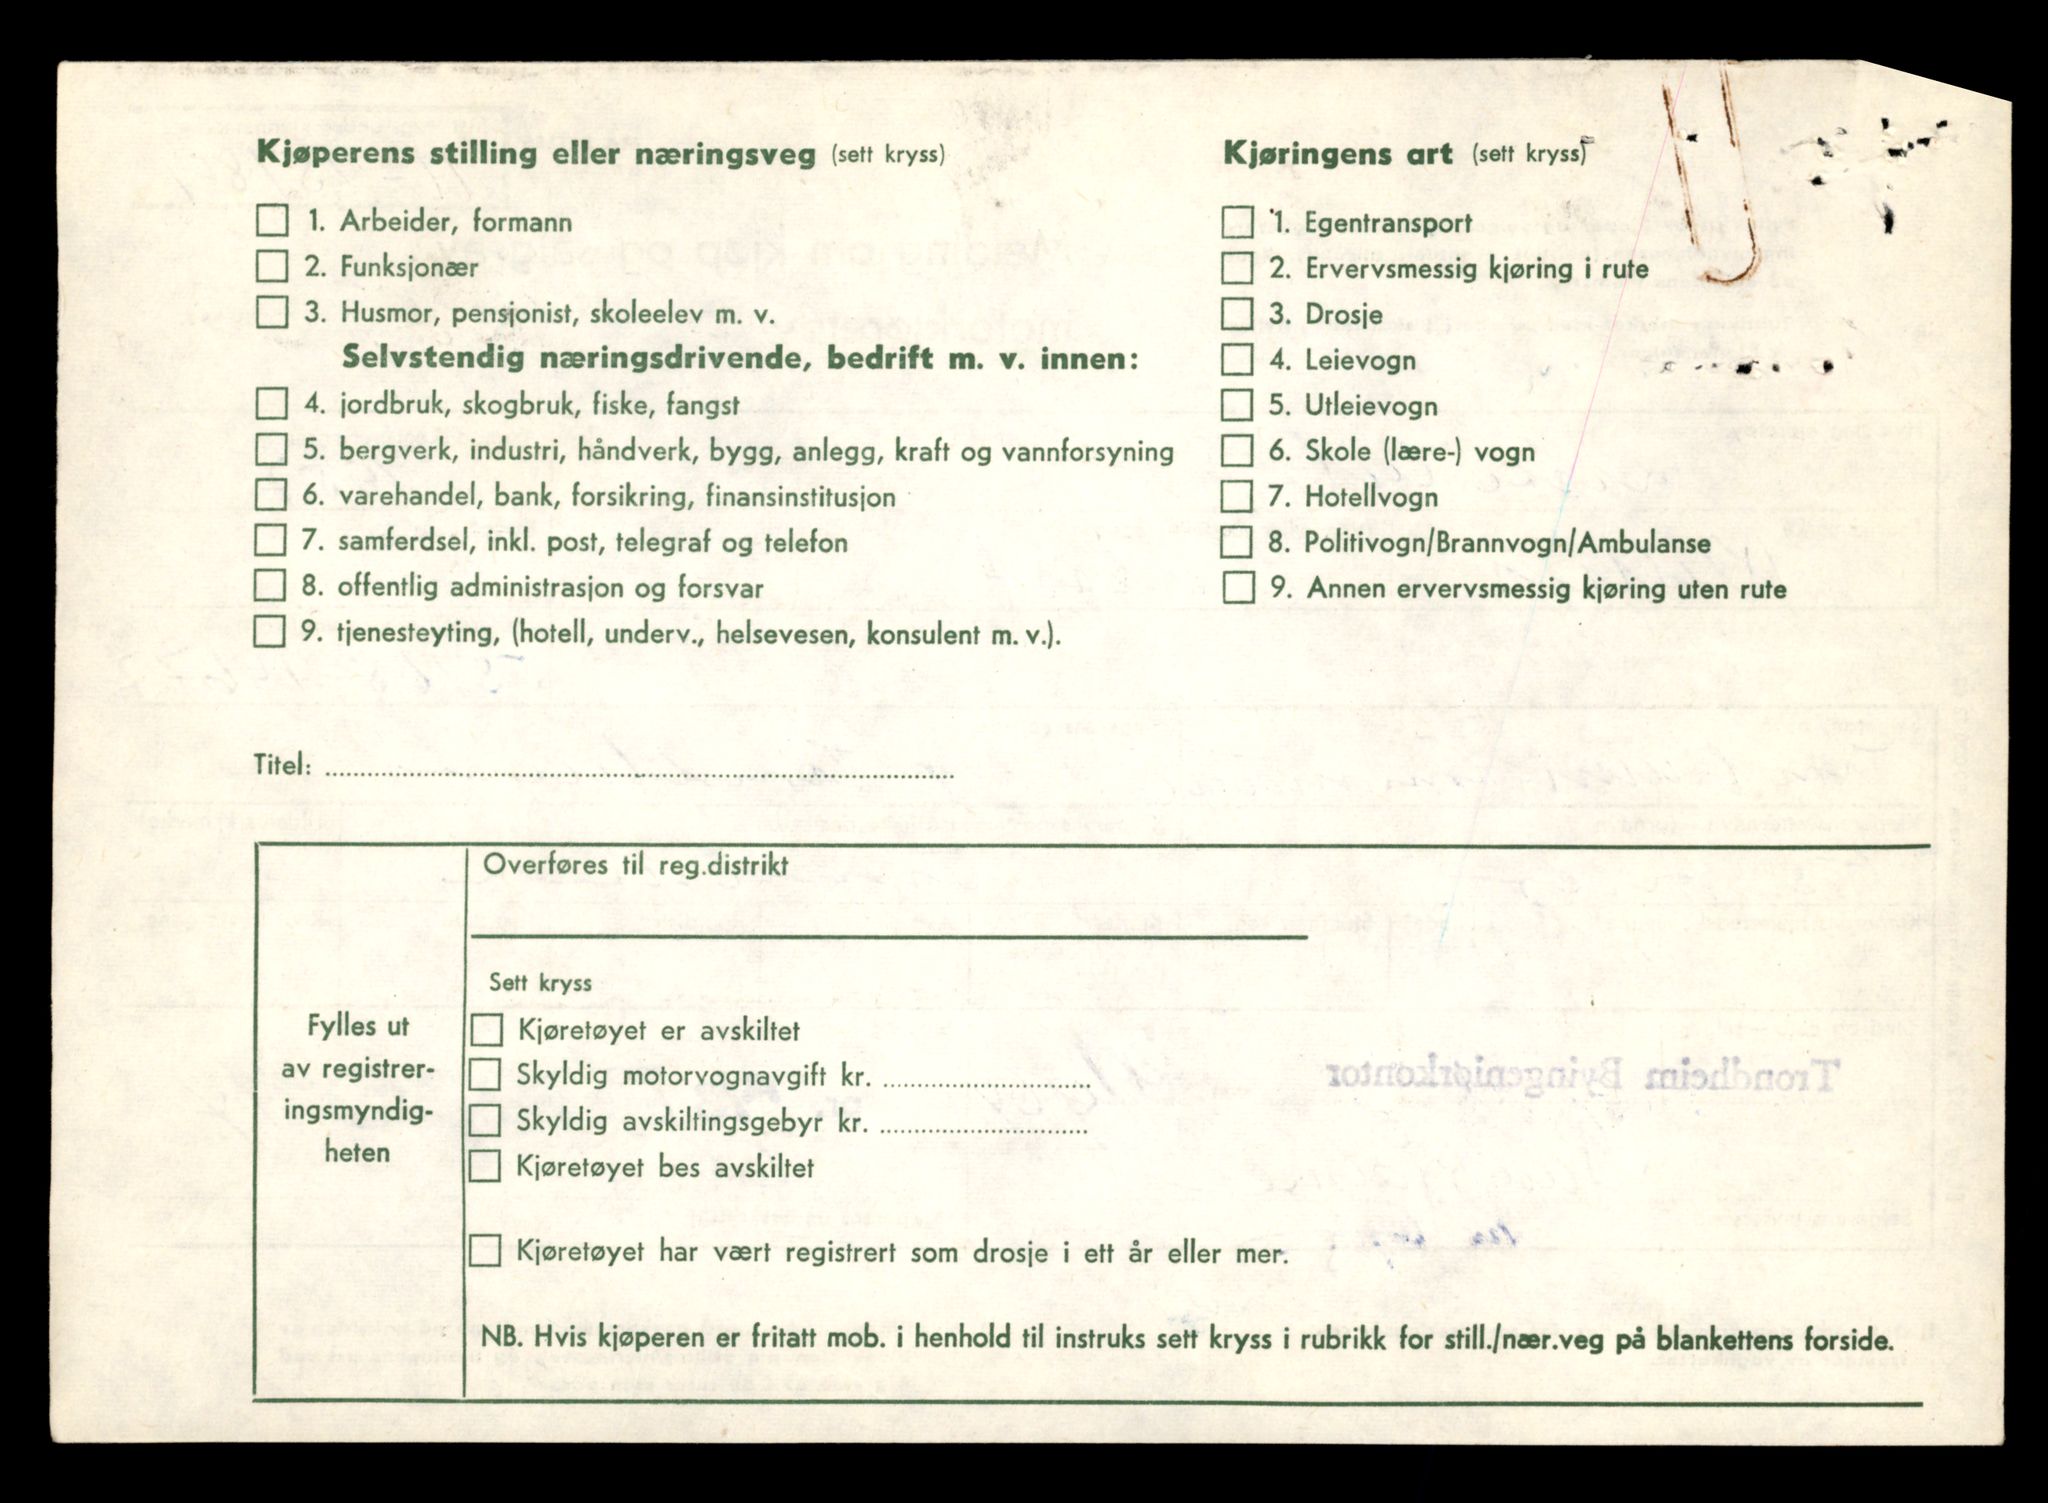 Kjøperens stilling eller næringsveg (sett kryss)
1. Arbeider, formann
2. Funksjonær
3. Husmor, pensjonist, skoleelev m. v.
Selvstendig næringsdrivende, bedrift m. v. innen:
4. jordbruk, skogbruk, fiske, fangst
5. bergverk, industri, håndverk, bygg, anlegg, kraft og vannforsyning
6. varehandel, bank, forsikring, finansinstitusjon
7. samferdsel, inkl. post, telegraf og telefon
8. offentlig administrasjon og forsvar
9. tjenesteyting, (hotell, underv., helsevesen, konsulent m. v.).
Kjøringens art (sett kryss)
1. Egentransport
2. Ervervsmessig kjøring i rute
3. Drosje
4. Leievogn
5. Utleievogn
6. Skole (lære-) vogn
7. Hotellvogn
8. Politivogn/Brannvogn/Ambulanse
9. Annen ervervsmessig kjøring uten rute
Titel:
Fylles ut
av registrer-
ingsmyndig-
heten
Overføres til reg.distrikt
Sett kryss
Kjøretøyet er avskiltet
Skyldig motorvognavgift kr.
Skyldig avskiltingsgebyr kr.
Kjøretøyet bes avskiltet
Kjøretøyet har vært registrert som drosje i ett år eller mer.
NB. Hvis kjøperen er fritatt mob. i henhold til instruks sett kryss i rubrikk for still./nær.veg på blankettens forside.
Trondheim Byingeniørkontor